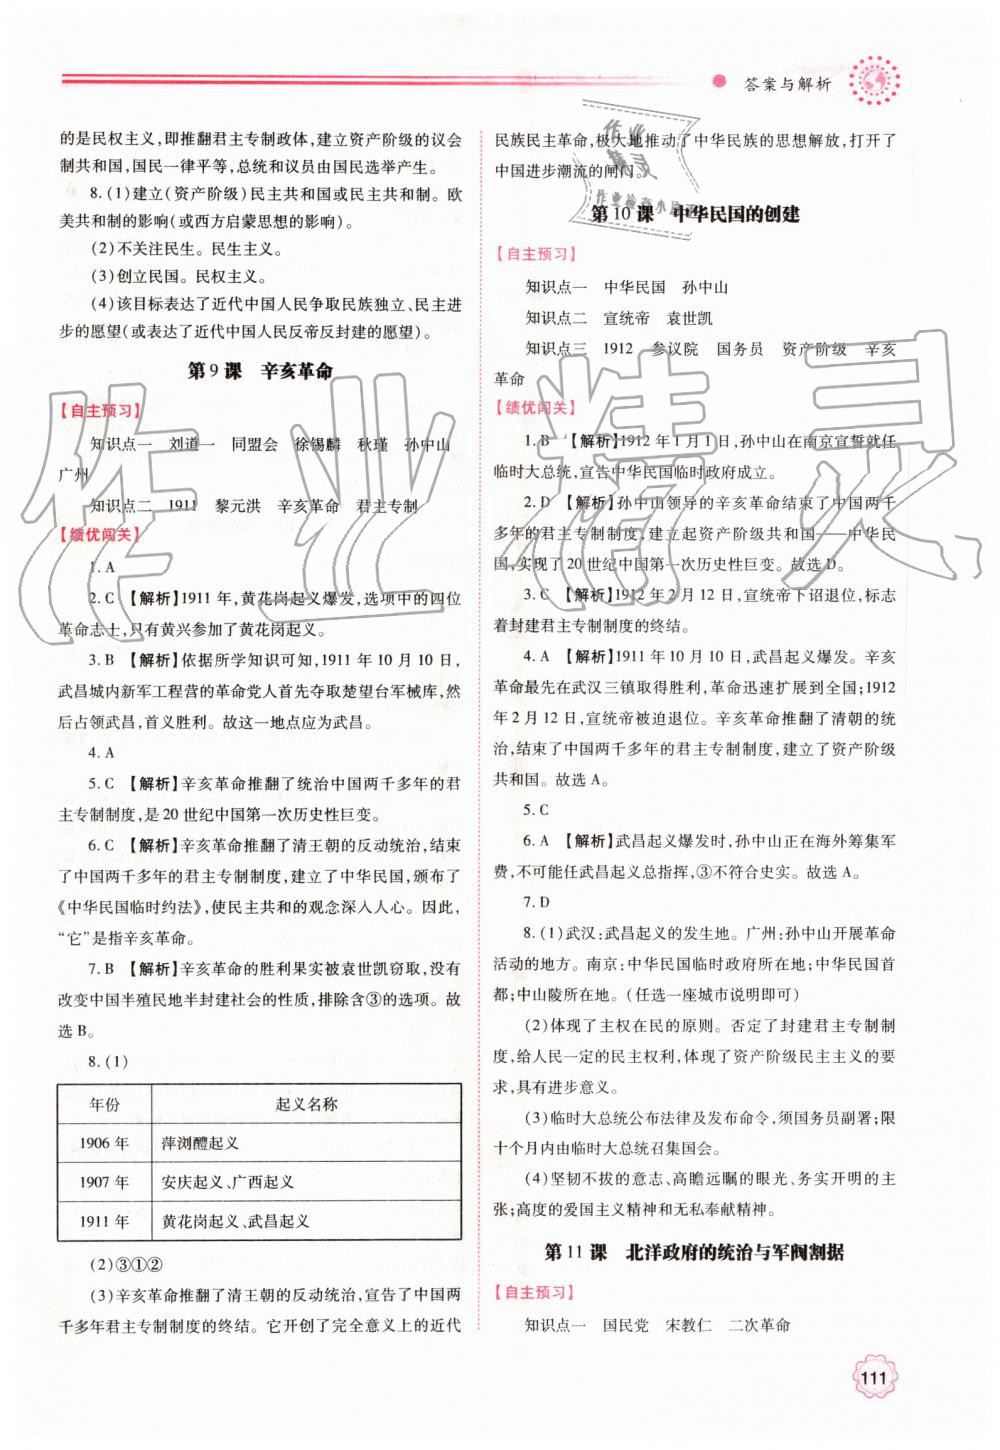 答案与解析
的是民权主义,即推翻君主专制政体,建立资产阶级的议会
制共和国,国民一律平等,总统和议员由国民选举产生。
8.(1)建立(资产阶级)民主共和国或民主共和制。欧
美共和制的影响(或西方启蒙思想的影响)。
(2)不关注民生。民生主义。
(3)创立民国。民权主义。
(4)该目标表达了近代中国人民争取民族独立、民主进
步的愿望(或表达了近代中国人民反帝反封建的愿望)。
第9课 辛亥革命
【自主预习】
知识点一 刘道一 同盟会 徐锡麟 秋瑾 孙中山
广州
知识点二 1911 黎元洪 辛亥革命 君主专制
【绩优闯关】
1.A
2.C 【解析】1911年,黄花岗起义爆发,选项中的四位
革命志士,只有黄兴参加了黄花岗起义。
3.B 【解析】依据所学知识可知,1911年10月10日,
武昌城内新军工程营的革命党人首先夺取楚望台军械库,然
后占领武昌,首义胜利。故这一地点应为武昌。
4.A
5.C 【解析】辛亥革命推翻了统治中国两千多年的君
主专制制度,是20世纪中国第一次历史性巨变。
6.C 【解析】辛亥革命推翻了清王朝的反动统治,结束
了中国两千多年的君主专制制度,建立了中华民国,颁布了
《中华民国临时约法》,使民主共和的观念深入人心。因此,
“它”是指辛亥革命。
7.B 【解析】辛亥革命的胜利果实被袁世凯窃取,没有
改变中国半殖民地半封建社会的性质,排除含③的选项。故
选B。
8.(1)
年份 起义名称
1906年 萍浏醴起义
1907年 安庆起义、广西起义
1911年 黄花岗起义、武昌起义
(2)③①②
(3)辛亥革命推翻了清王朝的反动统治,宣告了中国两
千多年君主专制制度的终结。它开创了完全意义上的近代
民族民主革命,极大地推动了中华民族的思想解放,打开了
中国进步潮流的闸门。
第10课 中华民国的创建
【自主预习】
知识点一 中华民国 孙中山
知识点二 宣统帝 袁世凯
知识点三 1912 参议院 国务员 资产阶级 辛亥
革命
【绩优闯关】
1.B 【解析】1912年1月1日,孙中山在南京宣誓就任
临时大总统,宣告中华民国临时政府成立。
2.D 【解析】孙中山领导的辛亥革命结束了中国两千
多年的君主专制制度,建立起资产阶级共和国——中华民
国,实现了20世纪中国第一次历史性巨变。故选D。
3.C 【解析】1912年2月12日,宣统帝下诏退位,标志
着封建君主专制制度的终结。
4.A 【解析】1911年10月10日,武昌起义爆发。辛亥
革命最先在武汉三镇取得胜利,革命迅速扩展到全国;1912
年2月12日,宣统帝被迫退位。辛亥革命推翻了清朝的统
治,结束了中国两千多年的君主专制制度,建立了资产阶级
共和国。故选A。
5.C
6.A 【解析】武昌起义爆发时,孙中山正在海外筹集军
费,不可能任武昌起义总指挥,③不符合史实。故选A。
7.D
8.(1)武汉:武昌起义的发生地。广州:孙中山开展革命
活动的地方。南京:中华民国临时政府所在地;中华民国首
都;中山陵所在地。(任选一座城市说明即可)
(2)体现了主权在民的原则。否定了封建君主专制制
度,给人民一定的民主权利,体现了资产阶级民主主义的要
求,具有进步意义。
(3)临时大总统公布法律及发布命令,须国务员副署;限
十个月内由临时大总统召集国会。
(4)坚韧不拔的意志、高瞻远瞩的眼光、务实开明的主
张;高度的爱国主义精神和无私奉献精神。
第11课 北洋政府的统治与军阀割据
【自主预习】
知识点一 国民党 宋教仁 二次革命
111
作业精灵
作业精灵